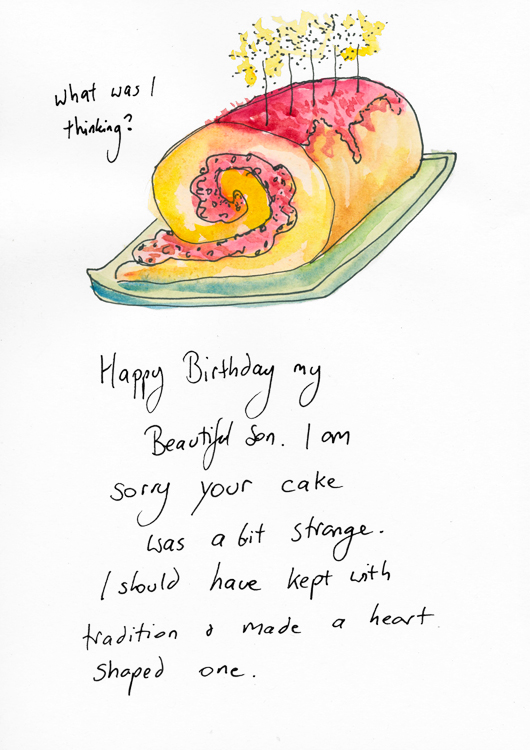 what was I
thinking?
Happy Birthday my
Beautiful Son. I am
sorry your cake
was a bit strange.
I should have kept with
tradition & made a heart
shaped one.